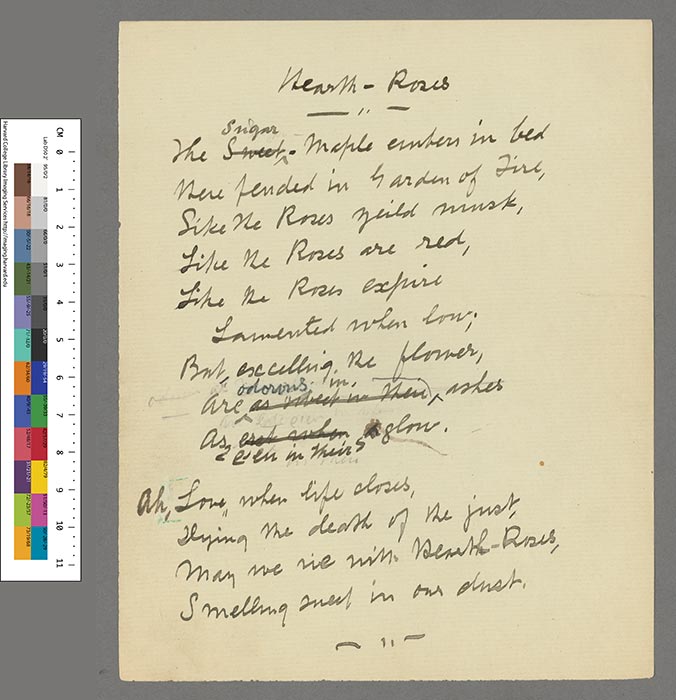 Hearth-Roses
Sugar
The Sweet-Maple embers in bed
Here fended in Garden of Fire,
Like the Roses yeild musk,
Like the Roses are red,
Like the Roses expire
Lamented when low;
But, excelling the flower,
odorous in
Are as sweet in their ashes
As when glow.
e'en in their
Ah, Love, when life closes,
Dying the death of the just,
May we vie with Hearth-Roses,
Smelling sweet in our dust.
Harvard College Library Imaging Services http://imaging.harvard.edu
CM 0 1 2 3 4 5 6 7 8 9 10 11